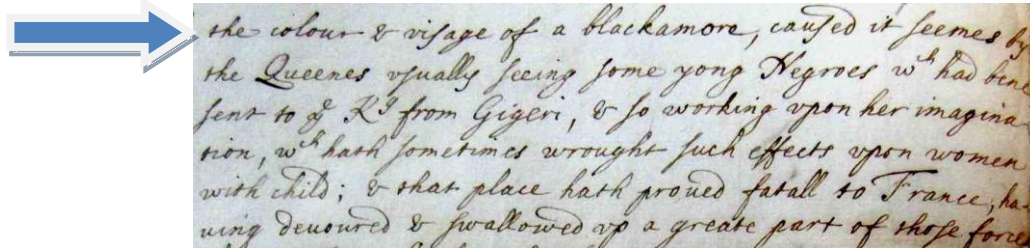 the colour & visage of a blackamore, caused it seemes by
the Queenes vsually seeing some yong Negroes wch had ben
sent to ye Kg from Gigeri, & so working vpon her imagina
tion, wch hath sometimes wrought such effects vpon women
with child; & that place hath proued fatall to France, ha-
uing deuoured & swallowed vp a greate part of those force